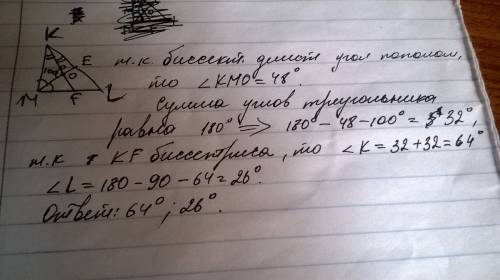 K
E
O
M
F
L
т.к. биссект. делит угол пополам,
то ∠KMO = 48°.
Сумма углов треугольника
равна 180° ⇒ 180° - 48 - 100° = 32°,
т.к KF биссектриса, то ∠K = 32 + 32 = 64°
∠L = 180 - 90 - 64 = 26°.
Ответ: 64°; 26°.